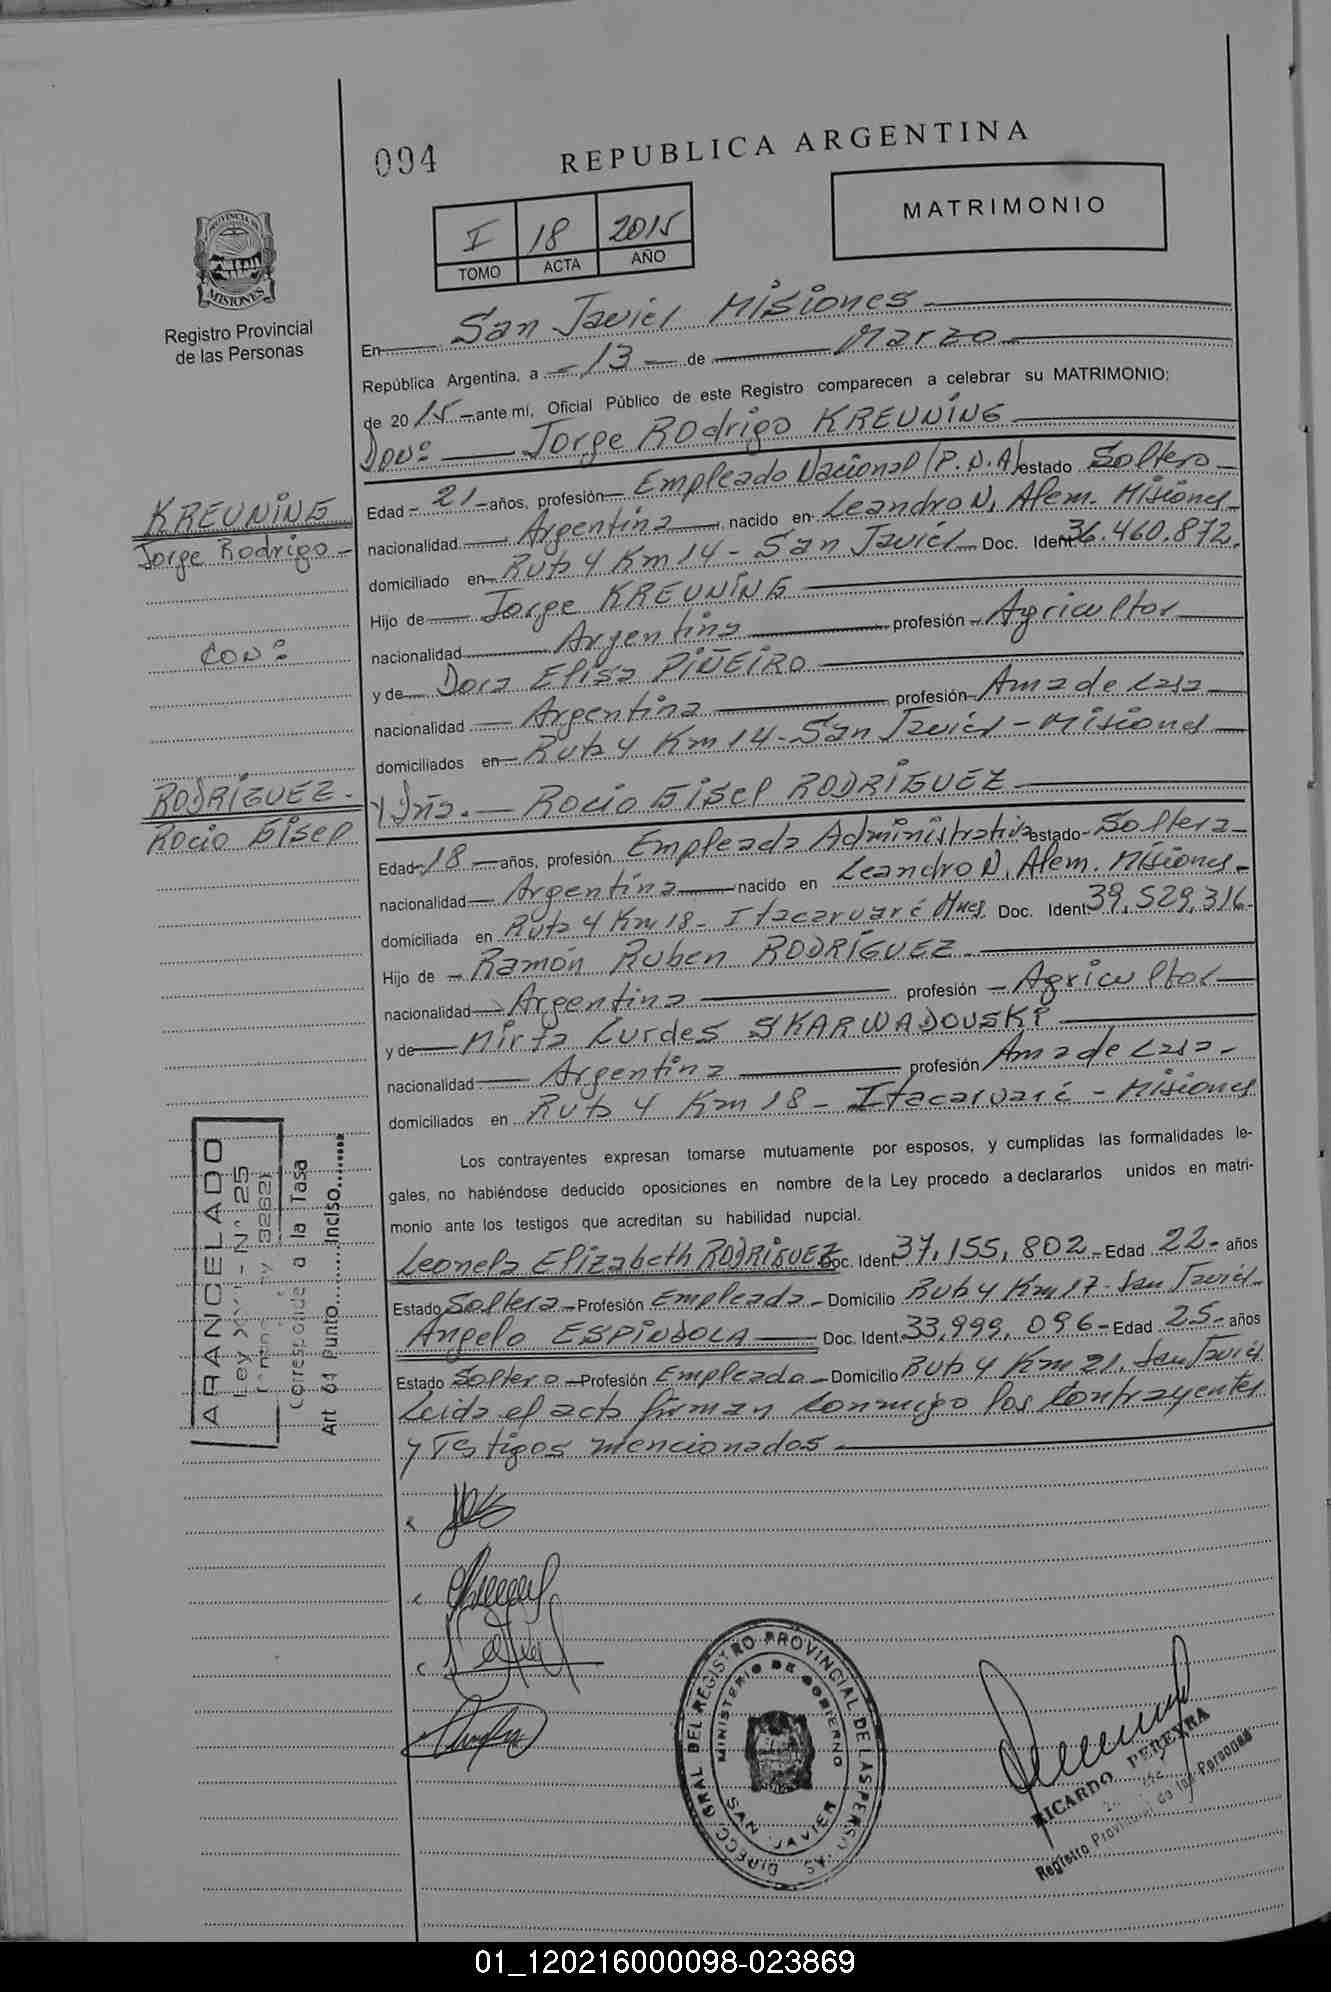 094
REPUBLICA ARGENTINA
MATRIMONIO
I 18 2015
TOMO ACTA AÑO
PROVINCIA DE MISIONES
Registro Provincial
de las Personas
En San Javier Misiones
República Argentina, a - 13 - de Marzo
de 2015 - ante mí, Oficial Público de este Registro comparecen a celebrar su MATRIMONIO:
Don: Jorge Rodrigo KREUNING
Edad - 21 - años, profesión Empleado Nacional (P.N.A) estado Soltero -
nacionalidad Argentina nacido en Leandro N. Alem. Misiones -
domiciliado en Ruta 4 Km 14 - San Javier Doc. Ident. 36.460.872.
Hijo de Jorge KREUNING
nacionalidad Argentina profesión - Agricultor
y de Dora Elisa PIÑEIRO
nacionalidad Argentina profesión Ama de casa
domiciliados en Ruta 4 Km 14 - San Javier - Misiones
Y Dña. - Rocio Gisel RODRÍGUEZ
Edad - 18 - años, profesión Empleada Administrativa estado - Soltera -
nacionalidad Argentina nacido en Leandro N. Alem. Misiones -
domiciliada en Ruta 4 Km 18 - Itacaruaré Mnes. Doc. Ident 39.529.316 -
Hijo de - Ramón Ruben RODRÍGUEZ -
nacionalidad Argentina profesión - Agricultor
y de Mirta Lurdes SKARWADOUSKI
nacionalidad Argentina profesión Ama de casa -
domiciliados en Ruta 4 Km 18 - Itacaruaré - Misiones
Los contrayentes expresan tomarse mutuamente por esposos, y cumplidas las formalidades le-
gales, no habiéndose deducido oposiciones en nombre de la Ley procedo a declararlos unidos en matri-
monio ante los testigos que acreditan su habilidad nupcial.
Leonela Elizabeth RODRIGUEZ Doc. Ident. 37.155.802 - Edad 22 - años
Estado Soltera - Profesión Empleada - Domicilio Ruta 4 Km 17 - San Javier -
Angelo ESPINDOLA Doc. Ident. 33.999.096 - Edad 25 - años
Estado Soltero - Profesión Empleado - Domicilio Ruta 4 Km 21. San Javier
Leida el acta firman conmigo los contrayentes
y Testigos mencionados
KREUNING
Jorge Rodrigo -
CON:
RODRÍGUEZ -
Rocio Gisel
ARANCELADO
Ley XVI - Nº 25
3262)
Corresponde a la Tasa
Art 01 Punto........Inciso........
DIRECC. GRAL DEL REGISTRO PROVINCIAL DE LAS PERSONAS
MINISTERIO DE GOBIERNO
SAN JAVIER
RICARDO PEREYRA
Registro Provincial de las Personas
01_120216000098-023869